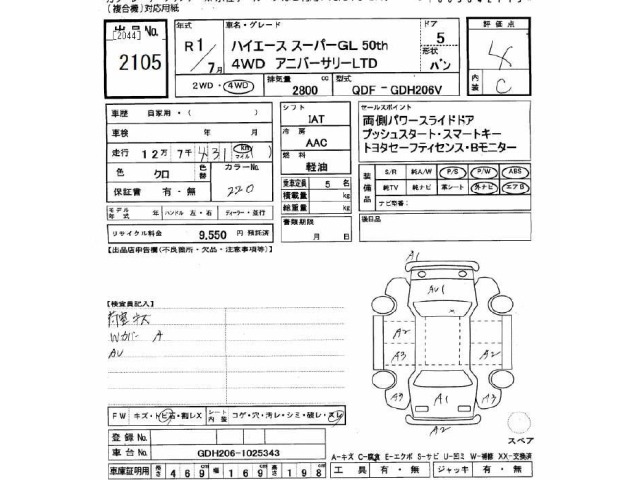 (複合機)対応用紙
出品No.
[2044]
2105
R1/7月
車名・グレード
ハイエース スーパーGL 50th
4WD アニバーサリーLTD
ドア
5
形状
バン
評価点
4
内装 C
2WD・4WD
排気量 2800 cc
型式 QDF-GDH206V
車歴 自家用・( )
車検 年 月
走行 12万7千431 Km マイル
色 クロ 色替 カラーNo. 220
保証書 有・無
モデル年式 年 ハンドル 左・右 ディーラー・並行
リサイクル料金 9,550 円 預託済
シフト
IAT
冷房
AAC
燃料
軽油
乗車定員 5 名
積載量 kg
総重量 kg
書類期限
月 日
セールスポイント
両側パワースライドドア
プッシュスタート・スマートキー
トヨタセーフティセンス・Bモニター
装備品
S/R 純A/W P/S P/W ABS
純TV 純ナビ 革シート 外ナビ エアB
ナビ型番:
後日品
[出品店申告欄(不良箇所・欠品・注意事項等)]
[検査員記入]
荷室キズ
Wカバー A
AU
FW キズ・トビ石・割レX
シート内装 コゲ・穴・汚レ・シミ・破レ・スレ
登録No.
車台No. GDH206-1025343
車庫証明用 長さ 469 幅 169 高さ 198
A1
AU1
A2
A3
A2
A2
A9
A1
A3
A2
スペア
A-キズ C-腐食 E-エクボ S-サビ U-凹ミ W-補修 XX-交換済
工具 有・無 ジャッキ 有・無